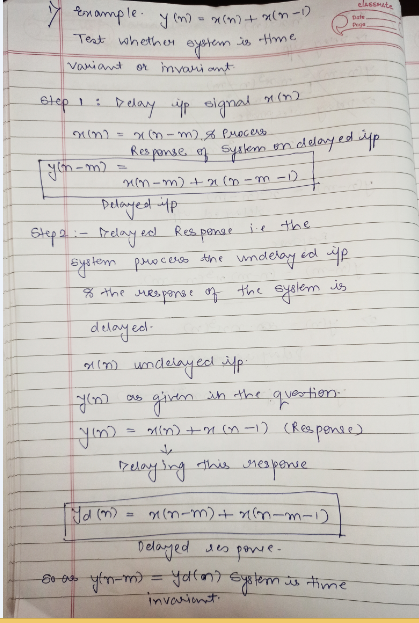 classmate
Date
Page
1) Example. y(n) = x(n) + x(n-1)
Test whether system is time
variant or invariant
Step 1 : Delay i/p signal x(n)
x(n) = x(n-m) & Process
Response of system on delayed i/p
y(n-m) =
x(n-m) + x(n-m-1)
Delayed i/p
Step 2 :- Delayed Response i.e the
system process the undelayed i/p
& the response of the system is
delayed.
x(n) undelayed i/p.
y(n) as given in the question.
y(n) = x(n) + x(n-1) (Response)
↓
Delaying this response
yd(n) = x(n-m) + x(n-m-1)
Delayed response.
So as y(n-m) = yd(n) system is time
invariant.